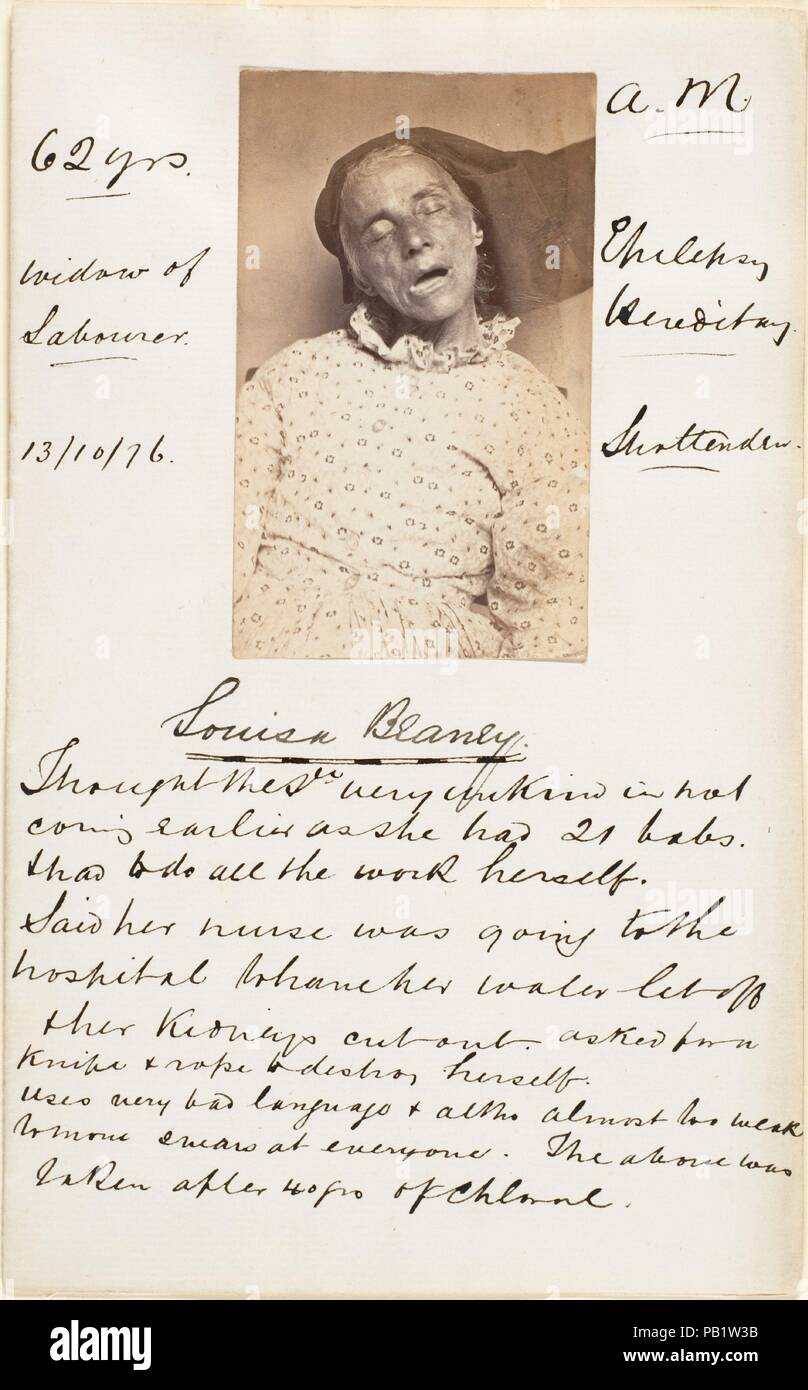 a. M.
62 yrs.
widow of
Labourer.
Epilepsy
Hereditary.
13/10/76.
Shottenden.
Louisa Blaney.
Thought the Dr very unkind in not
coming earlier as she had 21 babs.
& had to do all the work herself.
Said her nurse was going to the
hospital to have her water let off
& her Kidneys cut out. asked for a
Knife & rope to destroy herself.
uses very bad language & altho almost too weak
to move swears at everyone. The above was
taken after 40 grs of Chloral.
alamy
Image ID: PB1W3B
www.alamy.com